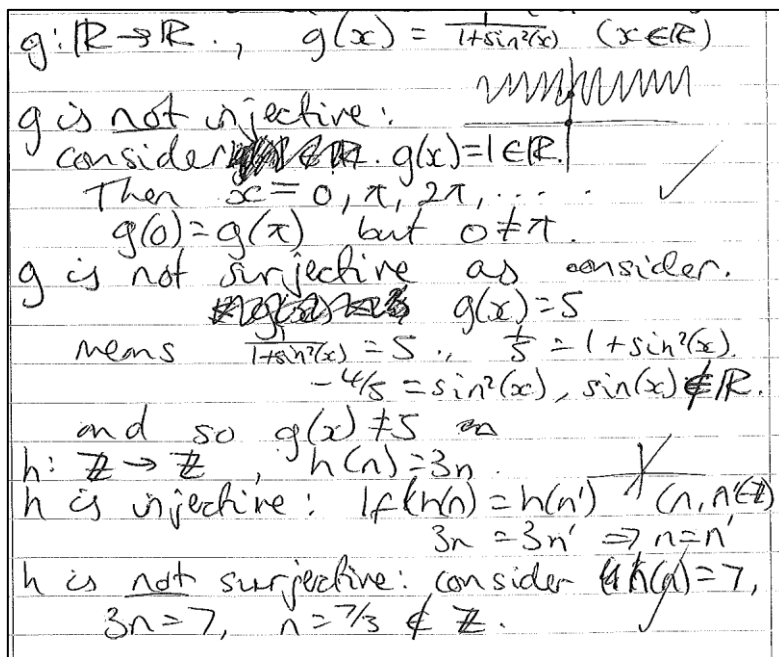 g: ℝ → ℝ., g(x) = 1/(1+sin²(x)) (x∈ℝ)
g is not injective:
consider g(x)=1∈ℝ.
Then x = 0, π, 2π, .....
g(0) = g(π) but 0≠π.
g is not surjective as consider.
g(x) = 5
means 1/(1+sin²(x)) = 5., 1/5 = 1+sin²(x).
-4/5 = sin²(x), sin(x) ∉ ℝ.
and so g(x) ≠ 5
h: ℤ → ℤ, h(n) = 3n.
h is injective: If h(n) = h(n') (n, n'∈ℤ)
3n = 3n' ⇒ n=n'
h is not surjective: consider h(n)=7,
3n=7, n=7/3 ∉ ℤ.